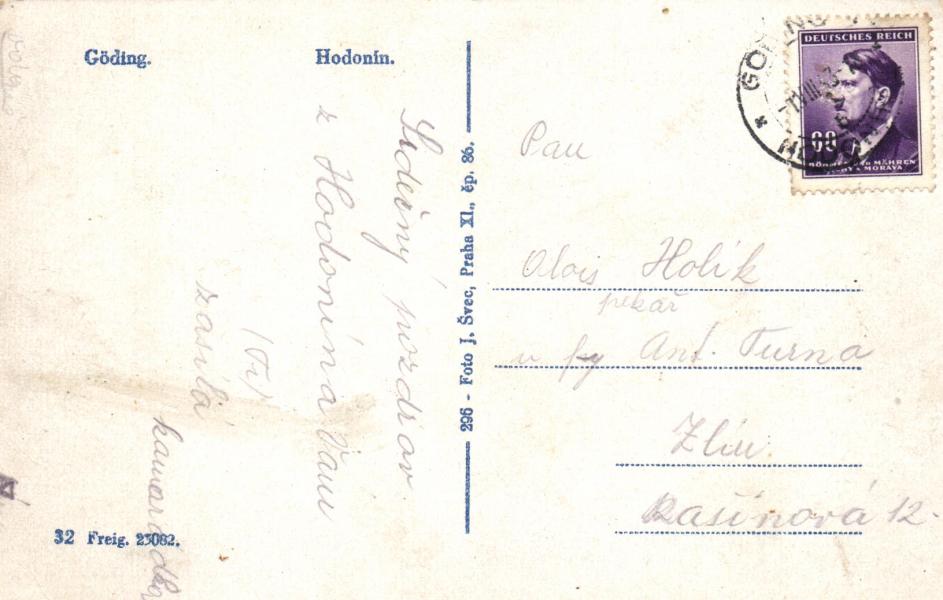 Göding.
Hodonín.
Srdečný pozdrav
z Hodonína Vám
(Ti)
zasílá
kamarádka
32 Freig. 23082.
296 - Foto J. Švec, Praha XI., čp. 86.
DEUTSCHES REICH
60
BÖHMEN UND MÄHREN
ČECHY A MORAVA
Pan
Alois Holík
pekař
u fy Ant. Turna
Zlín
Rašínová 12.